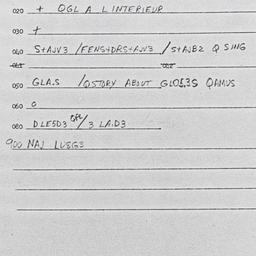 020 + QGL A L INTERIEUR
030 +
040 S+AJV3 /FENS+DRS+AJV3 /S+AJB2 Q SING
050 GLA.S /QSTORY ABOUT GLO£3S QAMUS
060 0
080 DLE5D3 /3 LA.D3
900 NAJ LUSG3